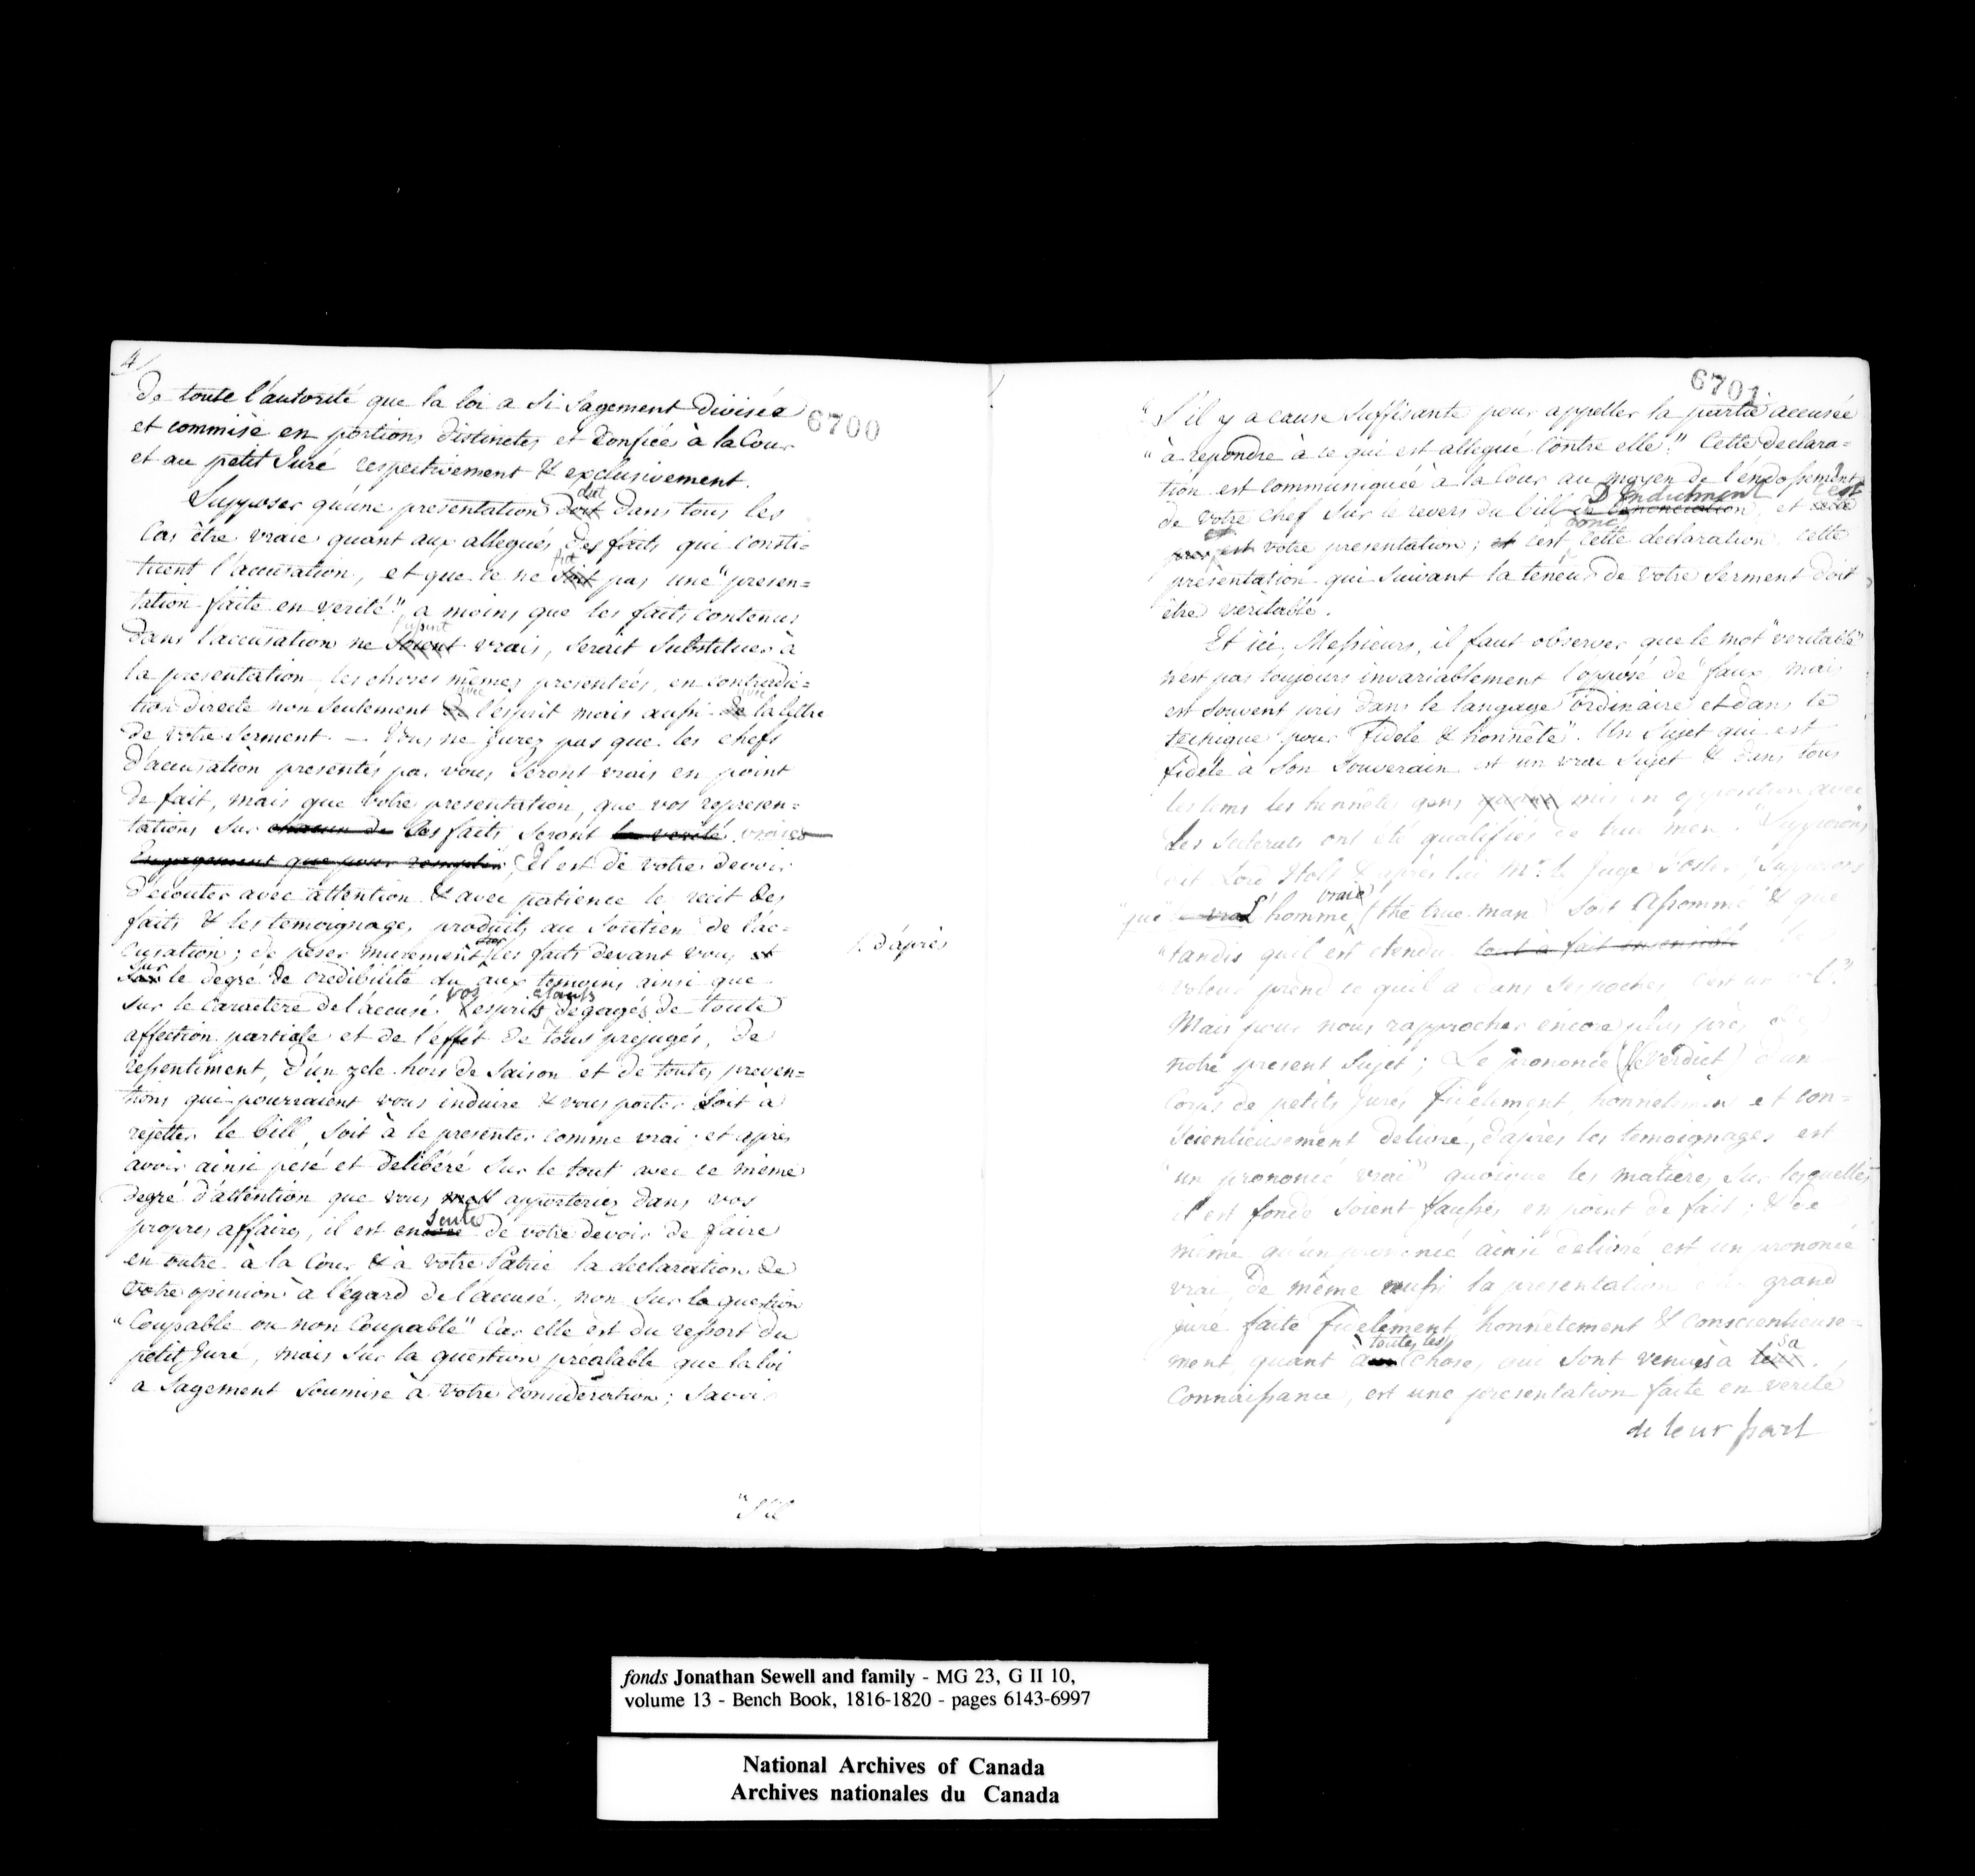 4/
6700
de toute l'autorité que la loi a si sagement divisée
et commisè en portions distinctes et confiées à la Cour
et au petit Juré respectivement & exclusivement.
Supposer qu'une presentation doit dut dans tous les
Cas être vraie quant aux allegués des faits qui consti=
tuent l'accusation, et que ce ne soit fut pas une "presen=
tation faite en verité", a moins que les faits contenus
dans l'accusation ne soient fussent vrais, serait substituer à
la presentation, les choses mêmes presentées, en contradic=
tion directe non seulement de avec l'esprit mais aussi de avec la lettre
de votre serment. — Vous ne jurez pas que les chefs
d'accusation presentés par vous seront vrais en point
de fait, mais que votre presentation, que vos represen=
tations sur chacun de ces faits seront la verité vraies
Engagement que pour remplir, Il est de votre devoir
d'écouter avec attention & avec patience le recit des
faits & les temoignages produits au soutien de l'ac=
cusation; de peser murement sur les faits devant vous et
sur le degré de credibilité du aux temoins ainsi que
/. d'après
sur le caractere de l'accusé. vos esprits étants degagés de toute
affection partiale et de l'effet de tous prejugés, de
ressentiment, d'un zele hors de saison et de toutes preven=
tions qui pourraient vous induire & vous porter soit à
rejetter le bill, soit à le presenter comme vrai; et après
avoir ainsi pésé et delibéré sur le tout avec ce même
degré d'attention que vous apporteriez dans vos
propres affaires, il est encore de votre devoir de faire
en outre à la Cour & à votre Patrie la declaration de
votre opinion à l'égard de l'accusé, non sur la question
"Coupable ou non Coupable" Car elle est du ressort du
petit Juré, mais sur la question préalable que la loi
a sagement soumise à votre consideration; savoir
"S'il
6701
"S'il y a cause suffisante pour appeller la partie accusée
"à repondre à ce qui est allegué contre elle." Cette declara=
tion est communiquée à la Cour au moyen de l'endossement
de votre chef sur le revers du bill de denonciation D'Indictment, et c'est
votre presentation; et c'est donc cette declaration cette
présentation qui suivant la teneur de votre serment doit
être veritable.
Et ici, Messieurs, il faut observer que le mot "veritable"
n'est pas toujours invariablement l'opposé de "faux" mais
est souvent pris dans le langage ordinaire et dans le
technique pour "Fidele & honnête". Un Sujet qui est
fidèle à son Souverain est un vrai Sujet & dans tous
les tems les honnêtes gens mis en opposition avec
des scelerats ont été qualifiés de true men. "Supposons
dit Lord Holt & après lui Mr. le Juge Foster "Supposons
"que le vrai L'homme vrai (the true man) soit assommé & que
"tandis qu'il est etendu tout à fait insensible
voleur prend ce qu'il a dans ses poches
Mais pour nous rapprocher encore plus près
notre present sujet; Le prononcé (le Verdict) d'un
Corps de petits jurés fidelement, honnetement et con=
scientieusement delivré, d'après les temoignages est
"un prononcé vrai" quoique les matières sur lesquelles
il est fondé soient fausses en point de fait; & de
même qu'un prononcé ainsi delivré est un prononcé
vrai, de même aussi la presentation d'un grand
juré faite fidelement, honnêtement & conscientieuse=
ment quant aux à toutes les choses qui sont venues à leur sa
connaissance, est une presentation faite en verité
de leur part
fonds Jonathan Sewell and family - MG 23, G II 10,
volume 13 - Bench Book, 1816-1820 - pages 6143-6997
National Archives of Canada
Archives nationales du Canada